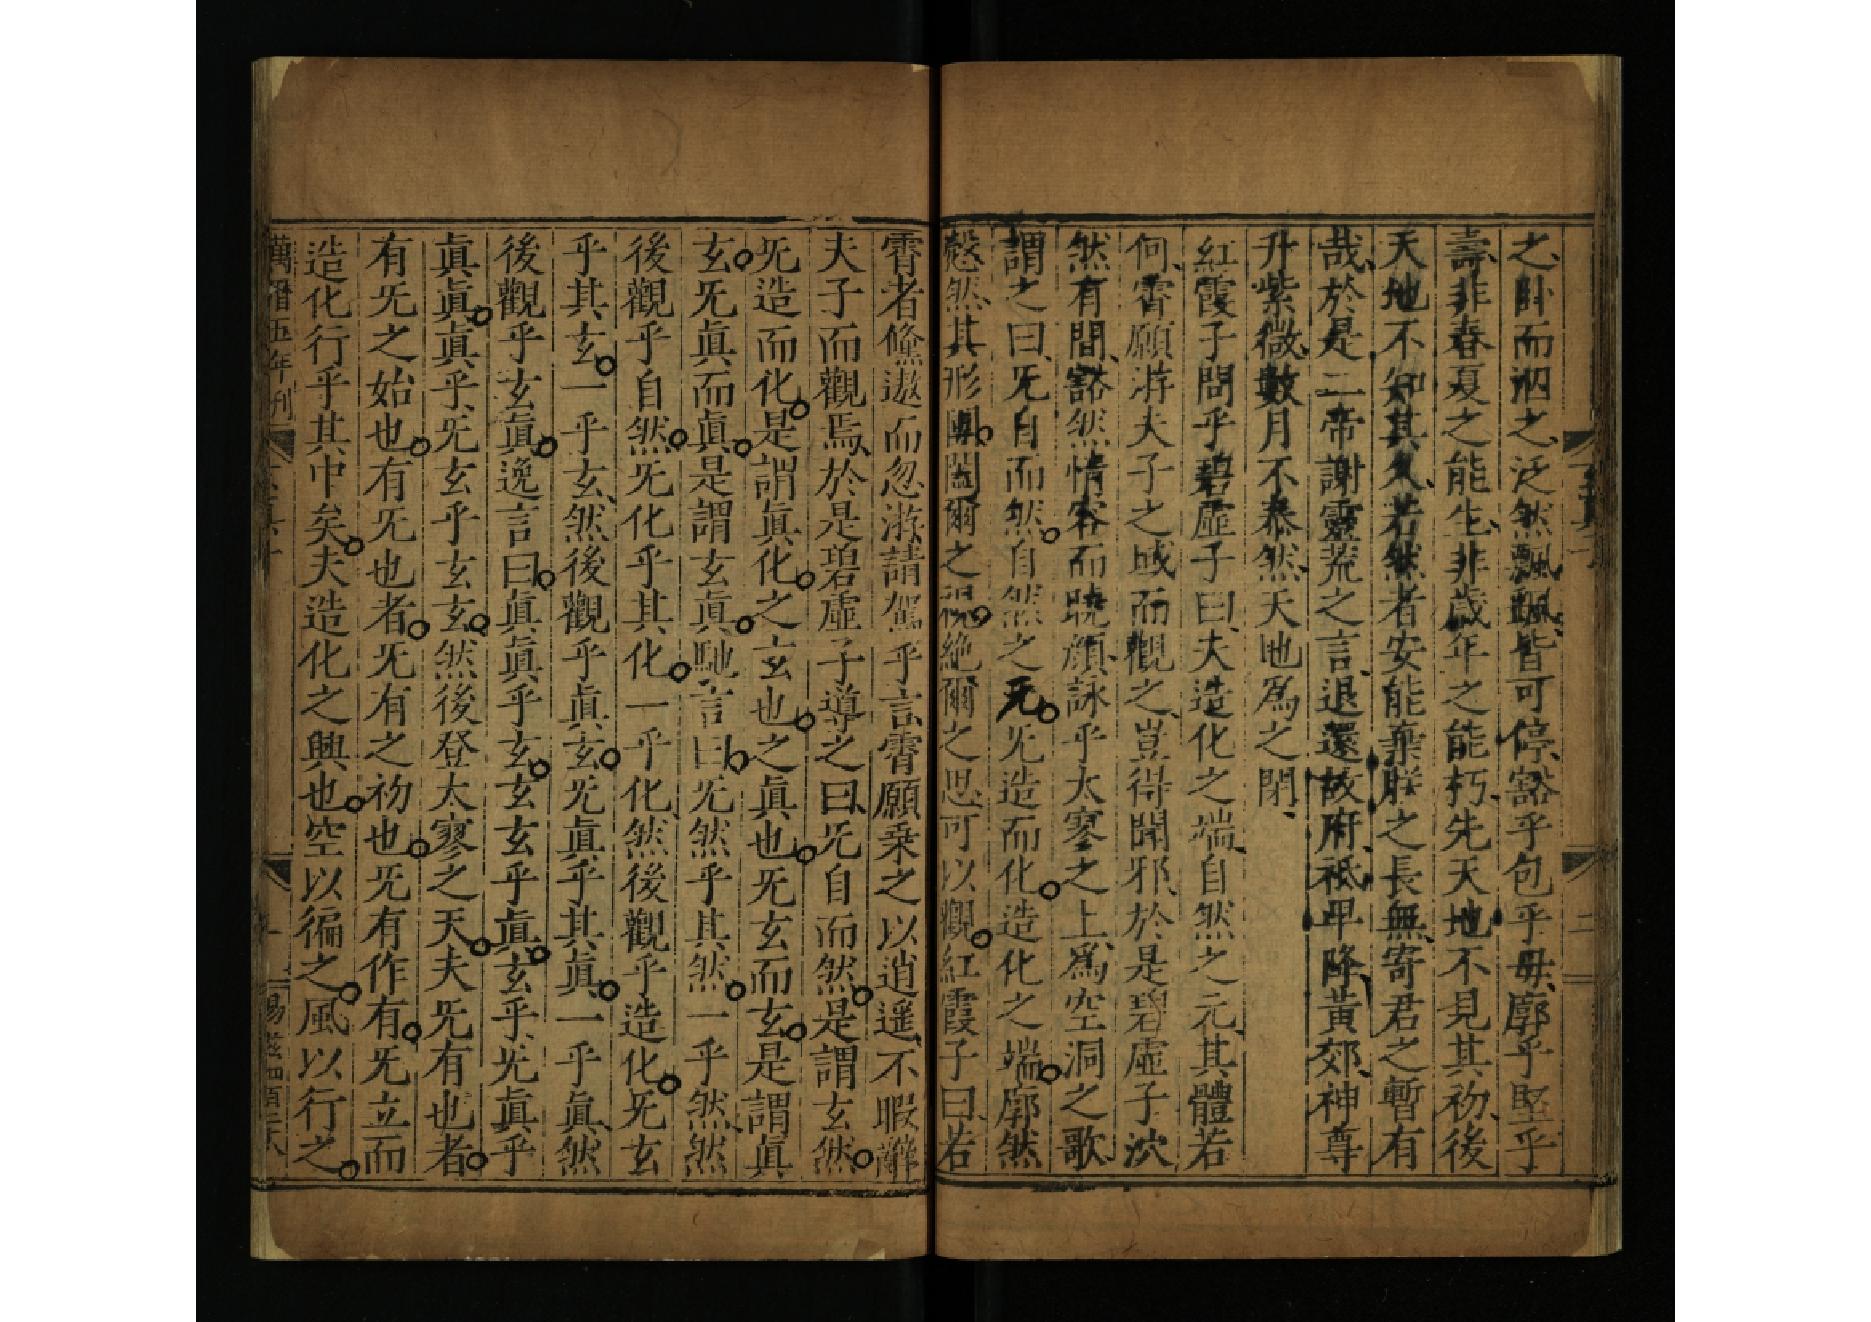 之卧而泅之泛然飄飄皆可停豁乎包乎母廓乎堅乎
壽非春夏之能生非歲年之能朽先天地不見其初後
天地不知其久若然者安能棄朕之長無寄君之暫有
哉於是二帝謝靈荒之言退還故府祇甲降黃郊神尊
升紫微數月不泰然天地爲之閉
紅霞子問乎碧虛子曰夫造化之端自然之元其體若
何霄願游夫子之域而觀之豈得聞邪於是碧虛子泬
然有間豁然情容而曉顏詠乎太寥之上爲空洞之歌
謂之曰旡自而然自然之无旡造而化造化之端廓然
慤然其形團闓爾之視絶爾之思可以觀紅霞子曰若
霄者儵遨而忽游請駕乎言霄願乗之以逍遥不暇離
夫子而觀焉於是碧虛子導之曰旡自而然是謂玄然
旡造而化是謂眞化之玄也之眞也旡玄而玄是謂眞
玄旡眞而眞是謂玄眞馳言曰旡然乎其然一乎然然
後觀乎自然旡化乎其化一乎化然後觀乎造化旡玄
乎其玄一乎玄然後觀乎眞玄旡眞乎其眞一乎眞然
後觀乎玄眞逸言曰眞眞乎玄玄玄乎眞玄乎旡眞乎
眞眞眞乎旡玄乎玄玄然後登太寥之天夫旡有也者
有旡之始也有旡也者旡有之初也旡有作有旡立而
造化行乎其中矣夫造化之興也空以徧之風以行之
萬曆五年刊